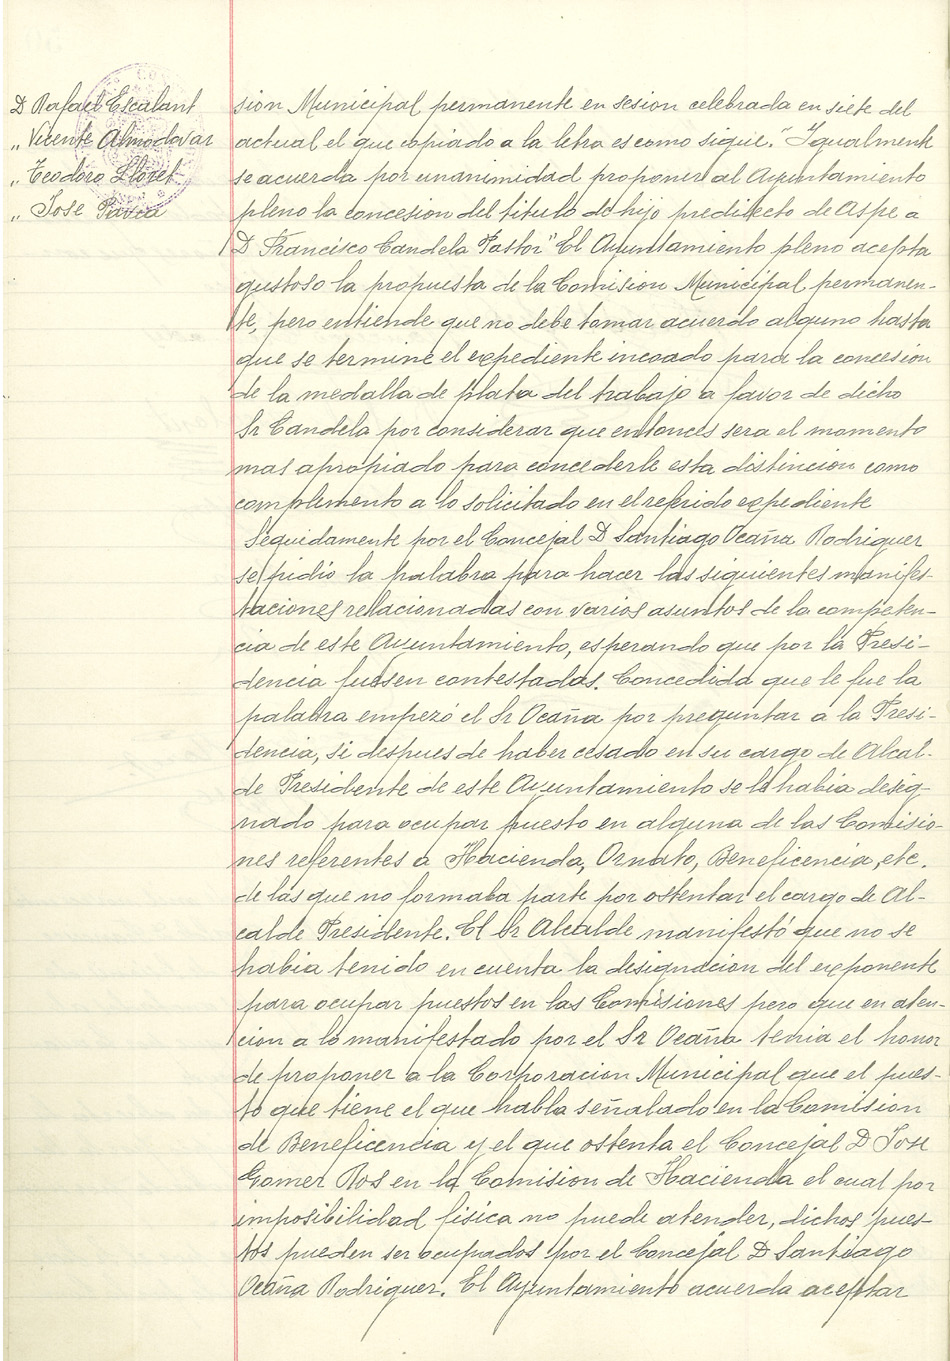 D Rafael Escalant
„ Vicente Almodovar
„ Teodoro Lloret
„ Jose Pavia
sion Municipal permanente en sesion celebrada en siete del
actual el que copiado a la letra es como sigue. "Igualmente
se acuerda por unanimidad proponer al Ayuntamiento
pleno la concesion del titulo de hijo predilecto de Aspe a
D Francisco Candela Pastor" El Ayuntamiento pleno acepta
gustoso la propuesta de la Comision Municipal permanen-
te, pero entiende que no debe tomar acuerdo alguno hasta
que se termine el expediente incoado para la concesion
de la medalla de plata del trabajo a favor de dicho
Sr Candela por considerar que entonces sera el momento
mas apropiado para concederle esta distincion como
complemento a lo solicitado en el referido expediente
Seguidamente por el Concejal D Santiago Ocaña Rodriguer
se pidio la palabra para hacer las siguientes manifes-
taciones relacionadas con varios asuntos de la competen-
cia de este Ayuntamiento, esperando que por la Presi-
dencia fuesen contestadas. Concedida que le fue la
palabra empezó el Sr Ocaña por preguntar a la Presi-
dencia, si despues de haber cesado en su cargo de Alcal-
de Presidente de este Ayuntamiento se le habia desig-
nado para ocupar puesto en alguna de las Comisio-
nes referentes a Hacienda, Ornato, Beneficencia, etc.
de las que no formaba parte por ostentar el cargo de Al-
calde Presidente. El Sr Alcalde manifestó que no se
habia tenido en cuenta la designacion del exponente
para ocupar puestos en las Comisiones pero que en aten-
cion a lo manifestado por el Sr Ocaña tenia el honor
de proponer a la Corporacion Municipal que el pues-
to que tiene el que habla señalado en la Comision
de Beneficencia y el que ostenta el Concejal D Jose
Gomer Ros en la Comision de Hacienda el cual por
imposibilidad fisica no puede atender, dichos pues-
tos pueden ser ocupados por el Concejal D Santiago
Ocaña Rodriguer. El Ayuntamiento acuerda aceptar